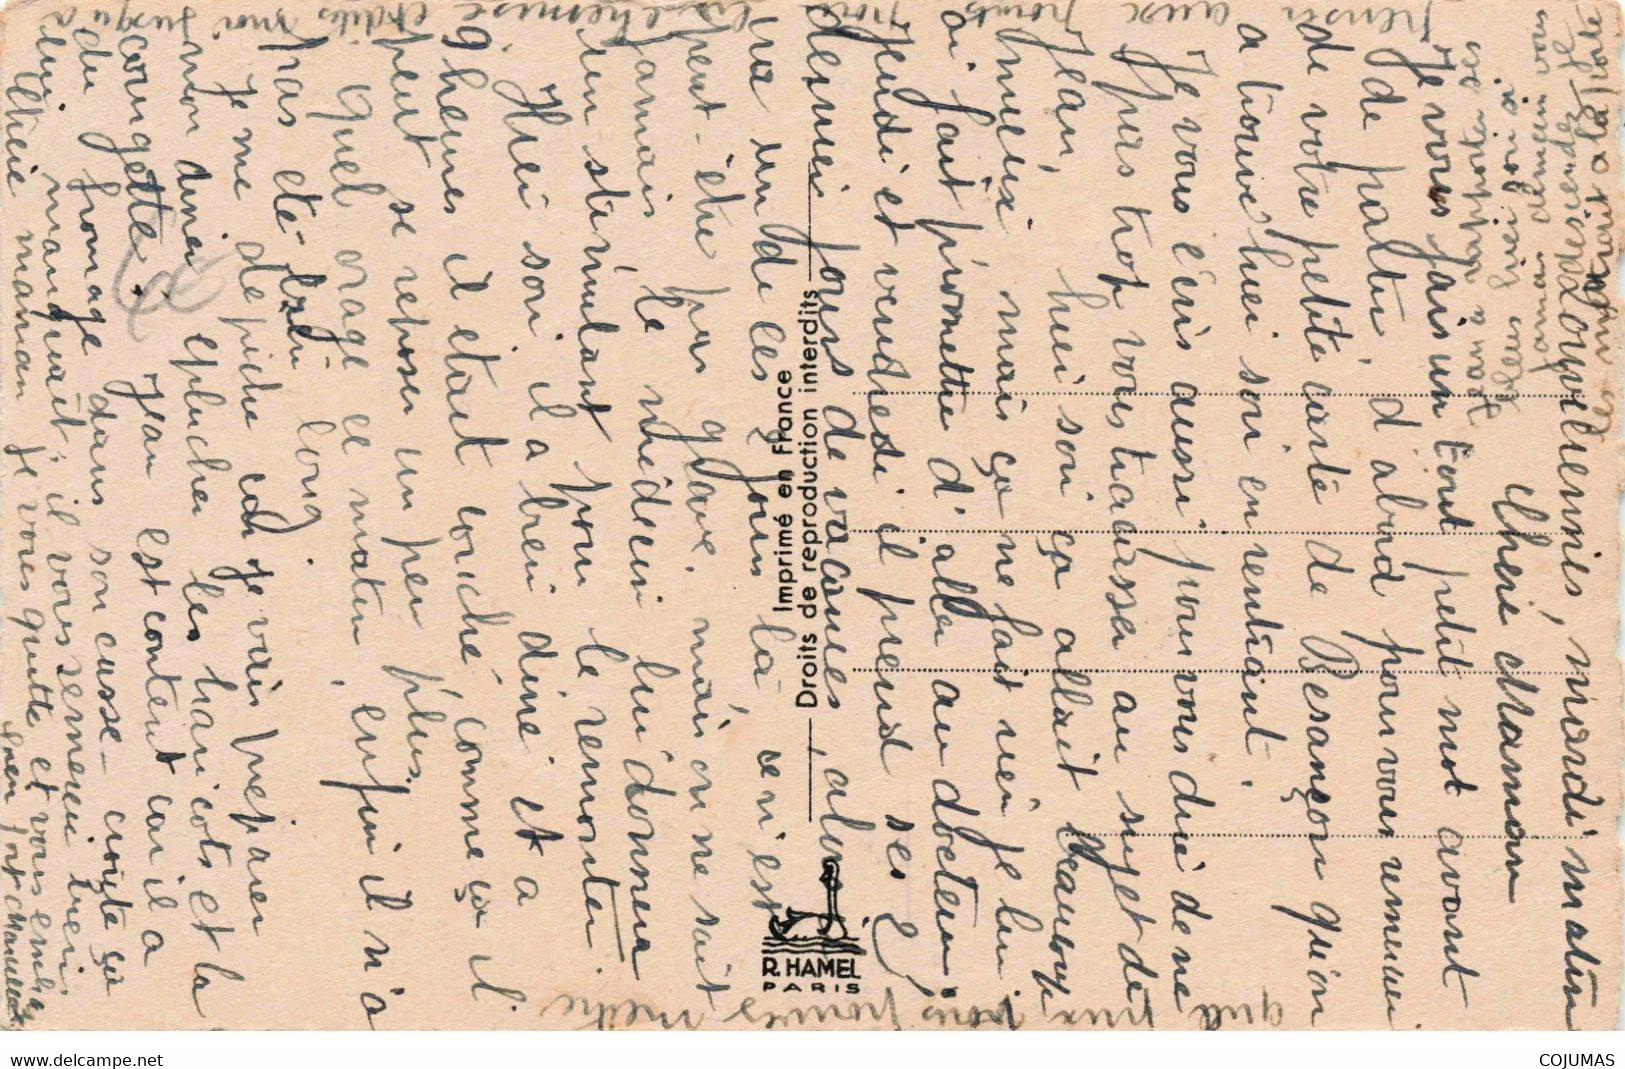 Louveciennes, mardi matin
Chère Maman
Je vous fais un tout petit mot avant
de partir d'abord pour vous remercier
de votre petite carte de Besançon qu'on
a trouvé hier soir en rentrant.
Je vous écris aussi pour vous dire de ne
pas trop vous tracasser au sujet de
Jean, hier soir ça allait beaucoup
mieux mais ça ne fait rien je lui
ai fait promettre d'aller au docteur
jeudi et vendredi il prend ses 2
derniers jours de vacances, alors
un de ces jours là, ce n'est
peut-être pas grave, mais on ne sait
jamais le médecin lui donnera
un stimulant pour le remonter.
Hier soir il a bien diné et a
9 heures il était couché, comme ça il
peut se reposer un peu plus.
Quel orage ce matin, enfin il n'a
pas été bien long.
Je me dépêche car je vais préparer
mon diner, éplucher les haricots et la
courgette. Jean est content car il a
du fromage dans son casse-croûte ça
lui manquait, il vous remercie bien
Chère maman je vous quitte et vous embrasse
bien fort
Imprimé en France
Droits de reproduction interdits
R. HAMEL
PARIS
COJUMAS